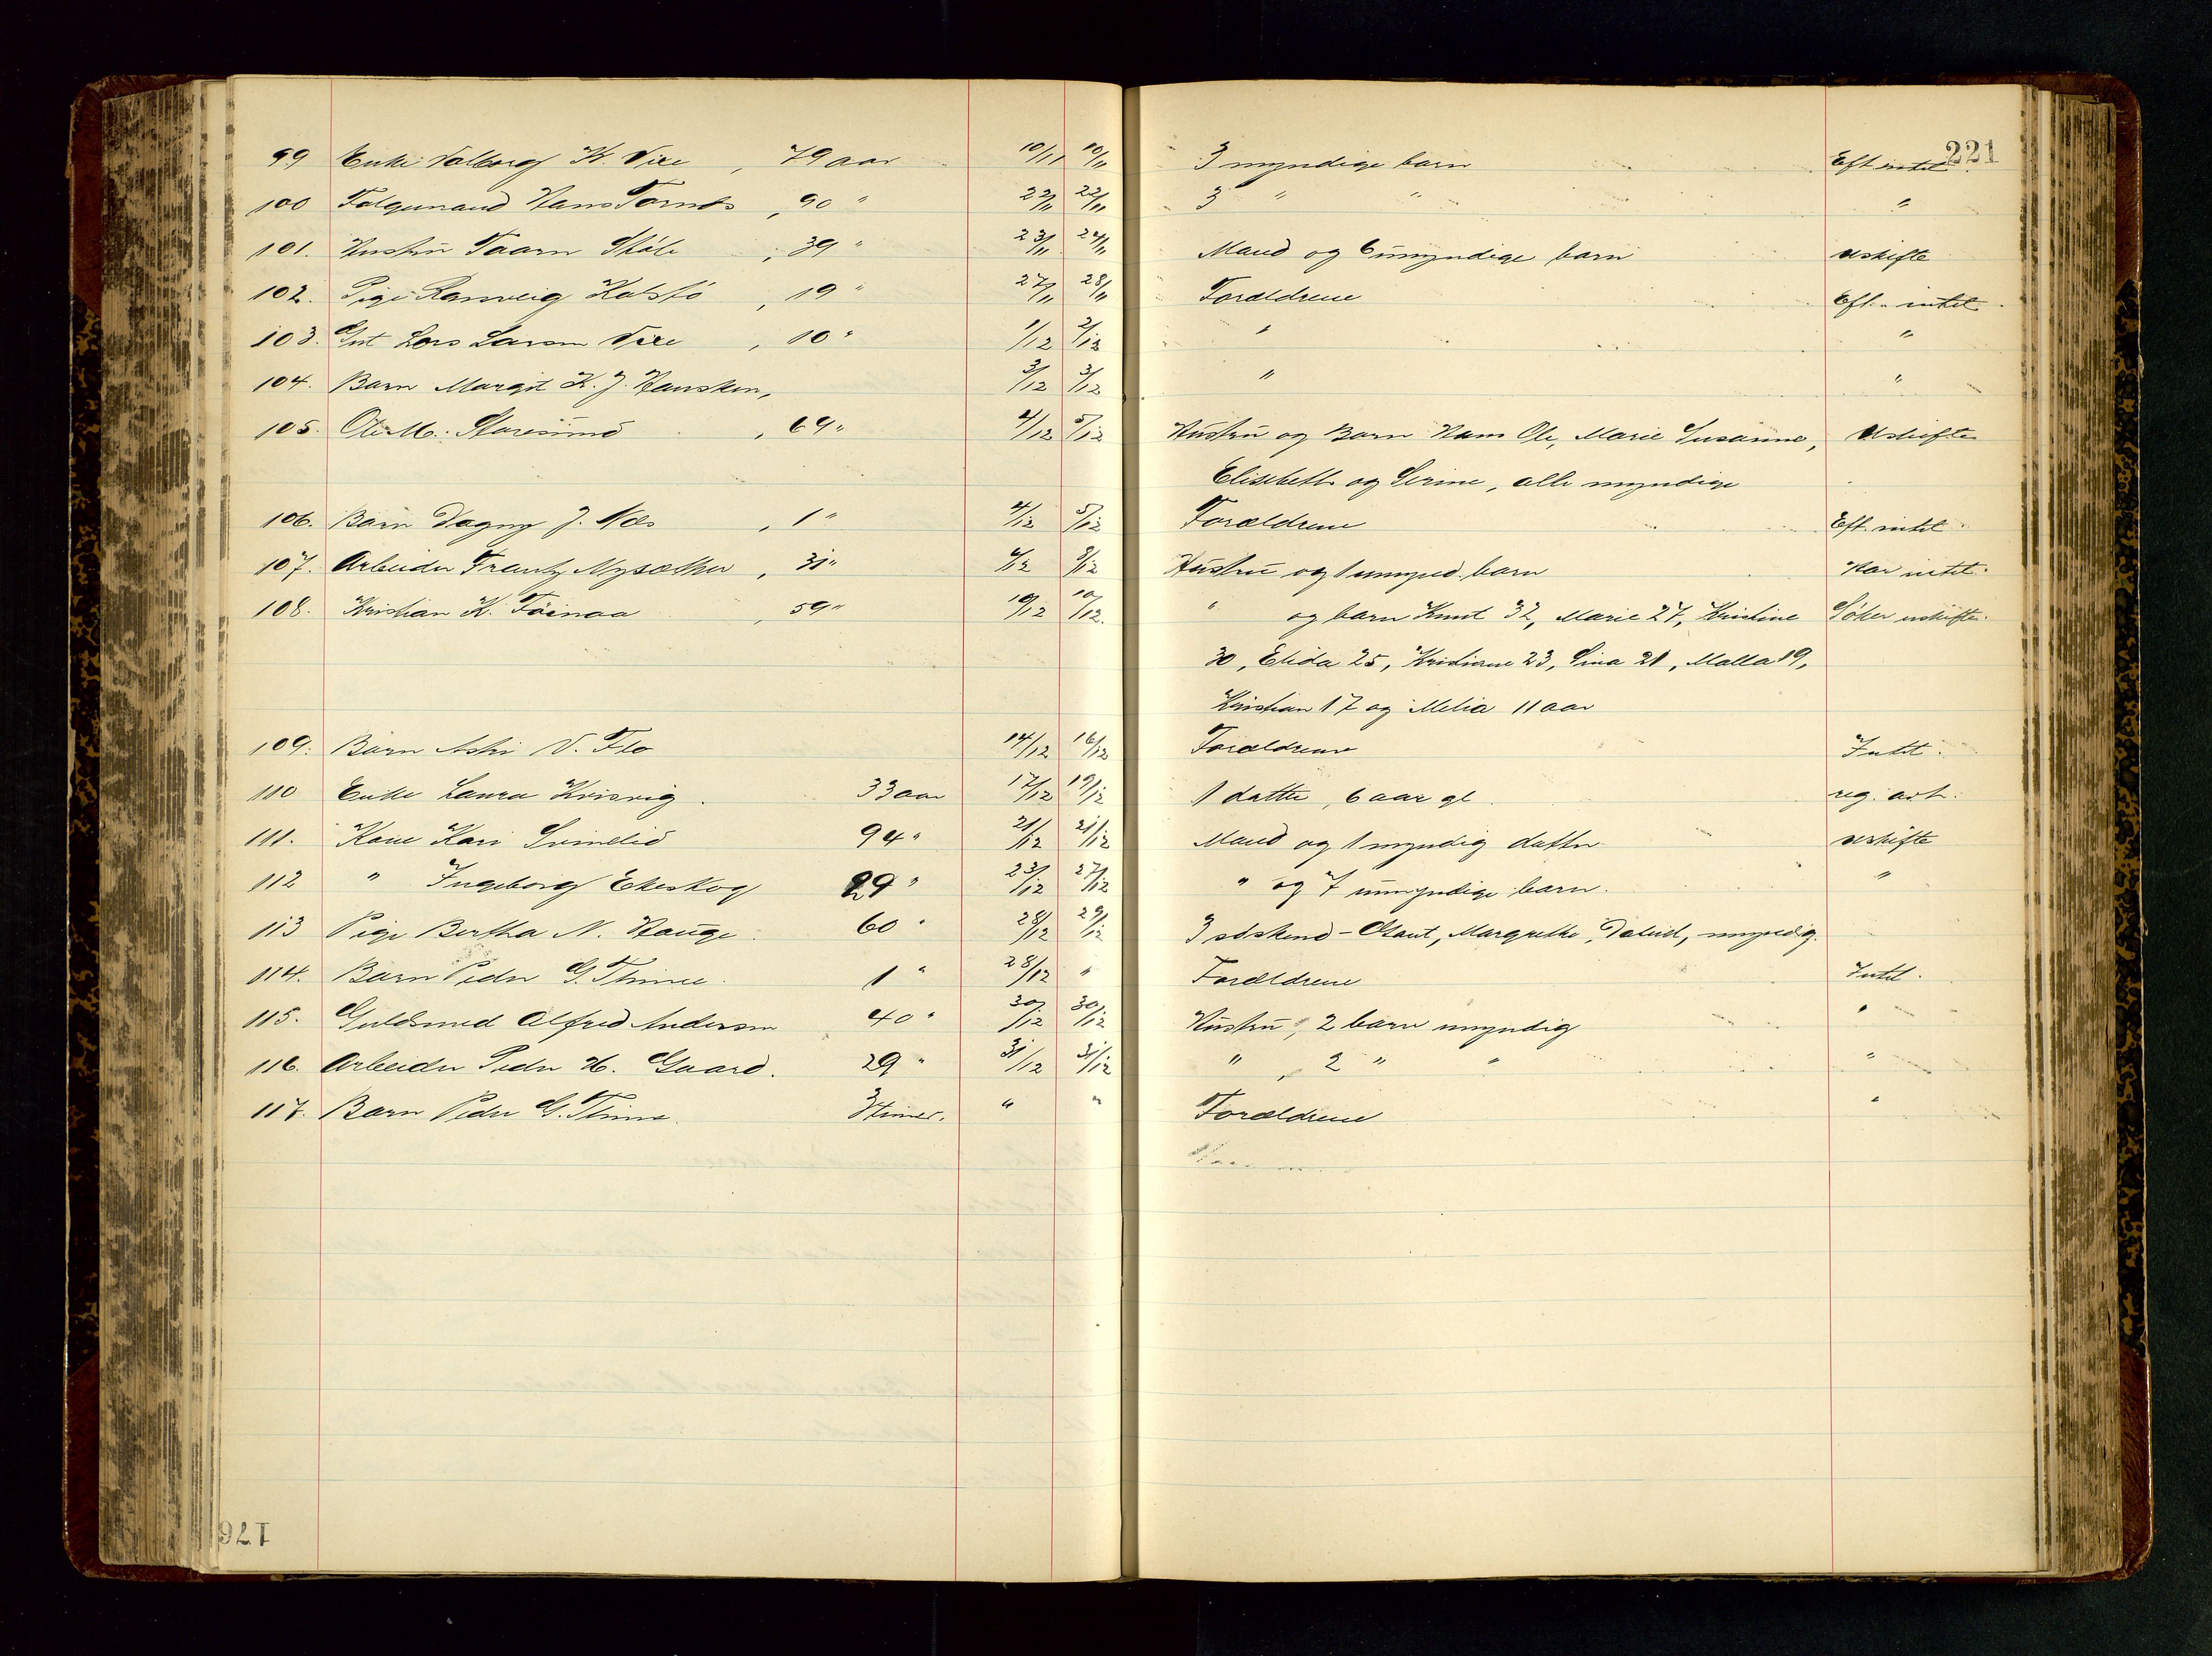 221
99 Enke Valborg K. Vire, 79 aar 10/11 10/11 3 myndige barn Eft intet.
100 Følgemand Hans Tornes, 90 " 22/11 22/11 3 " " "
101. Hustru Taarn Støle, 39 " 23/11 24/11 Mand og 6 umyndige barn uskifte
102. Pige Ranveig Kolstø, 19 " 27/11 28/11 Forældrene Eft. intet
103. Gut Lars Larsen Vire, 10 " 1/12 2/12 " "
104. Barn Margit K. J. Hansken, 3/12 3/12 " "
105. Ole M. Staresund, 69 " 4/12 5/12 Hustru og Barn Hans Ole, Marie Susanne, Uskifte
Elisebeth og Serine, alle myndige
106. Barn Dagny J. Nes, 1 " 4/12 5/12 Forældrene Eft. intet
107. Arbeider Frantz Mysæther, 31 " 6/12 8/12 Hustru og 1 umynd. barn Har intet.
108. Kristian K. Föinaa, 59 " 10/12 10/12. " og barn Knut 32, Marie 27, Kristine Søker uskifte.
30, Elida 25, Kristiane 23, Sina 21, Malla 19,
Kristian 17 og Melia 11 aar
109. Barn V. Flo 14/12 16/12 Forældrene Intet.
110 Enke Laura Krisvig. 33 aar 17/12 19/12 1 datter, 6 aar gl. reg. arb.
111. Kone Kari Svindlid 94 " 21/12 21/12 Mand og 1 myndig datter uskifte
112 " Ingeborg Ekeskog 29 " 23/12 27/12 " og 7 umyndige barn. "
113 Pige Bertha N. Hauge. 60 " 28/12 29/12 3 søskend - Margrethe, myndig.
114. Barn Peder G. Thime. 1 " 28/12 " Forældrene Intet.
115. Guldsmed Alfred Andersen 40 " 30/12 30/12 Hustru, 2 barn umyndig "
116. Arbeider Peder H. Gaard. 29 " 31/12 31/12 " , 2 " " "
117. Barn Peder G. Thime. 3 timer. " " Forældrene "
176